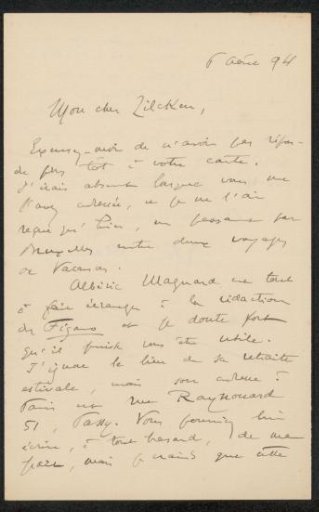 6 août 94
Mon cher Zilcken,
Excusez-moi de n'avoir pas répon-
du plus tôt à votre carte.
J'étais absent lorsque vous me
l'avez adressée, et je ne l'ai
reçue qu'hier, en passant par
Bruxelles entre deux voyages
de vacances.
Albéric Magnard est tout
à fait étranger à la rédaction
du Figaro et je doute fort
qu'il puisse vous être utile.
J'ignore le lieu de sa retraite
estivale, mais son adresse à
Paris est rue Raynouard
51, Passy. Vous pourriez lui
écrire, à tout hasard, de ma
part, mais je crains que cette